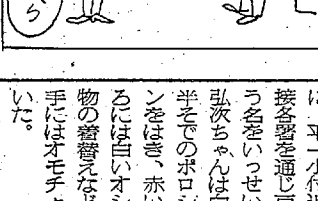 ら
に、平一小付近
接各署を通じ戸
う名をいっせい
弘次ちゃんは白
半そでのポロシ
ンをはき、赤い
ろには白いオシ
物の着替えなど
手にはオモチャ
いた。